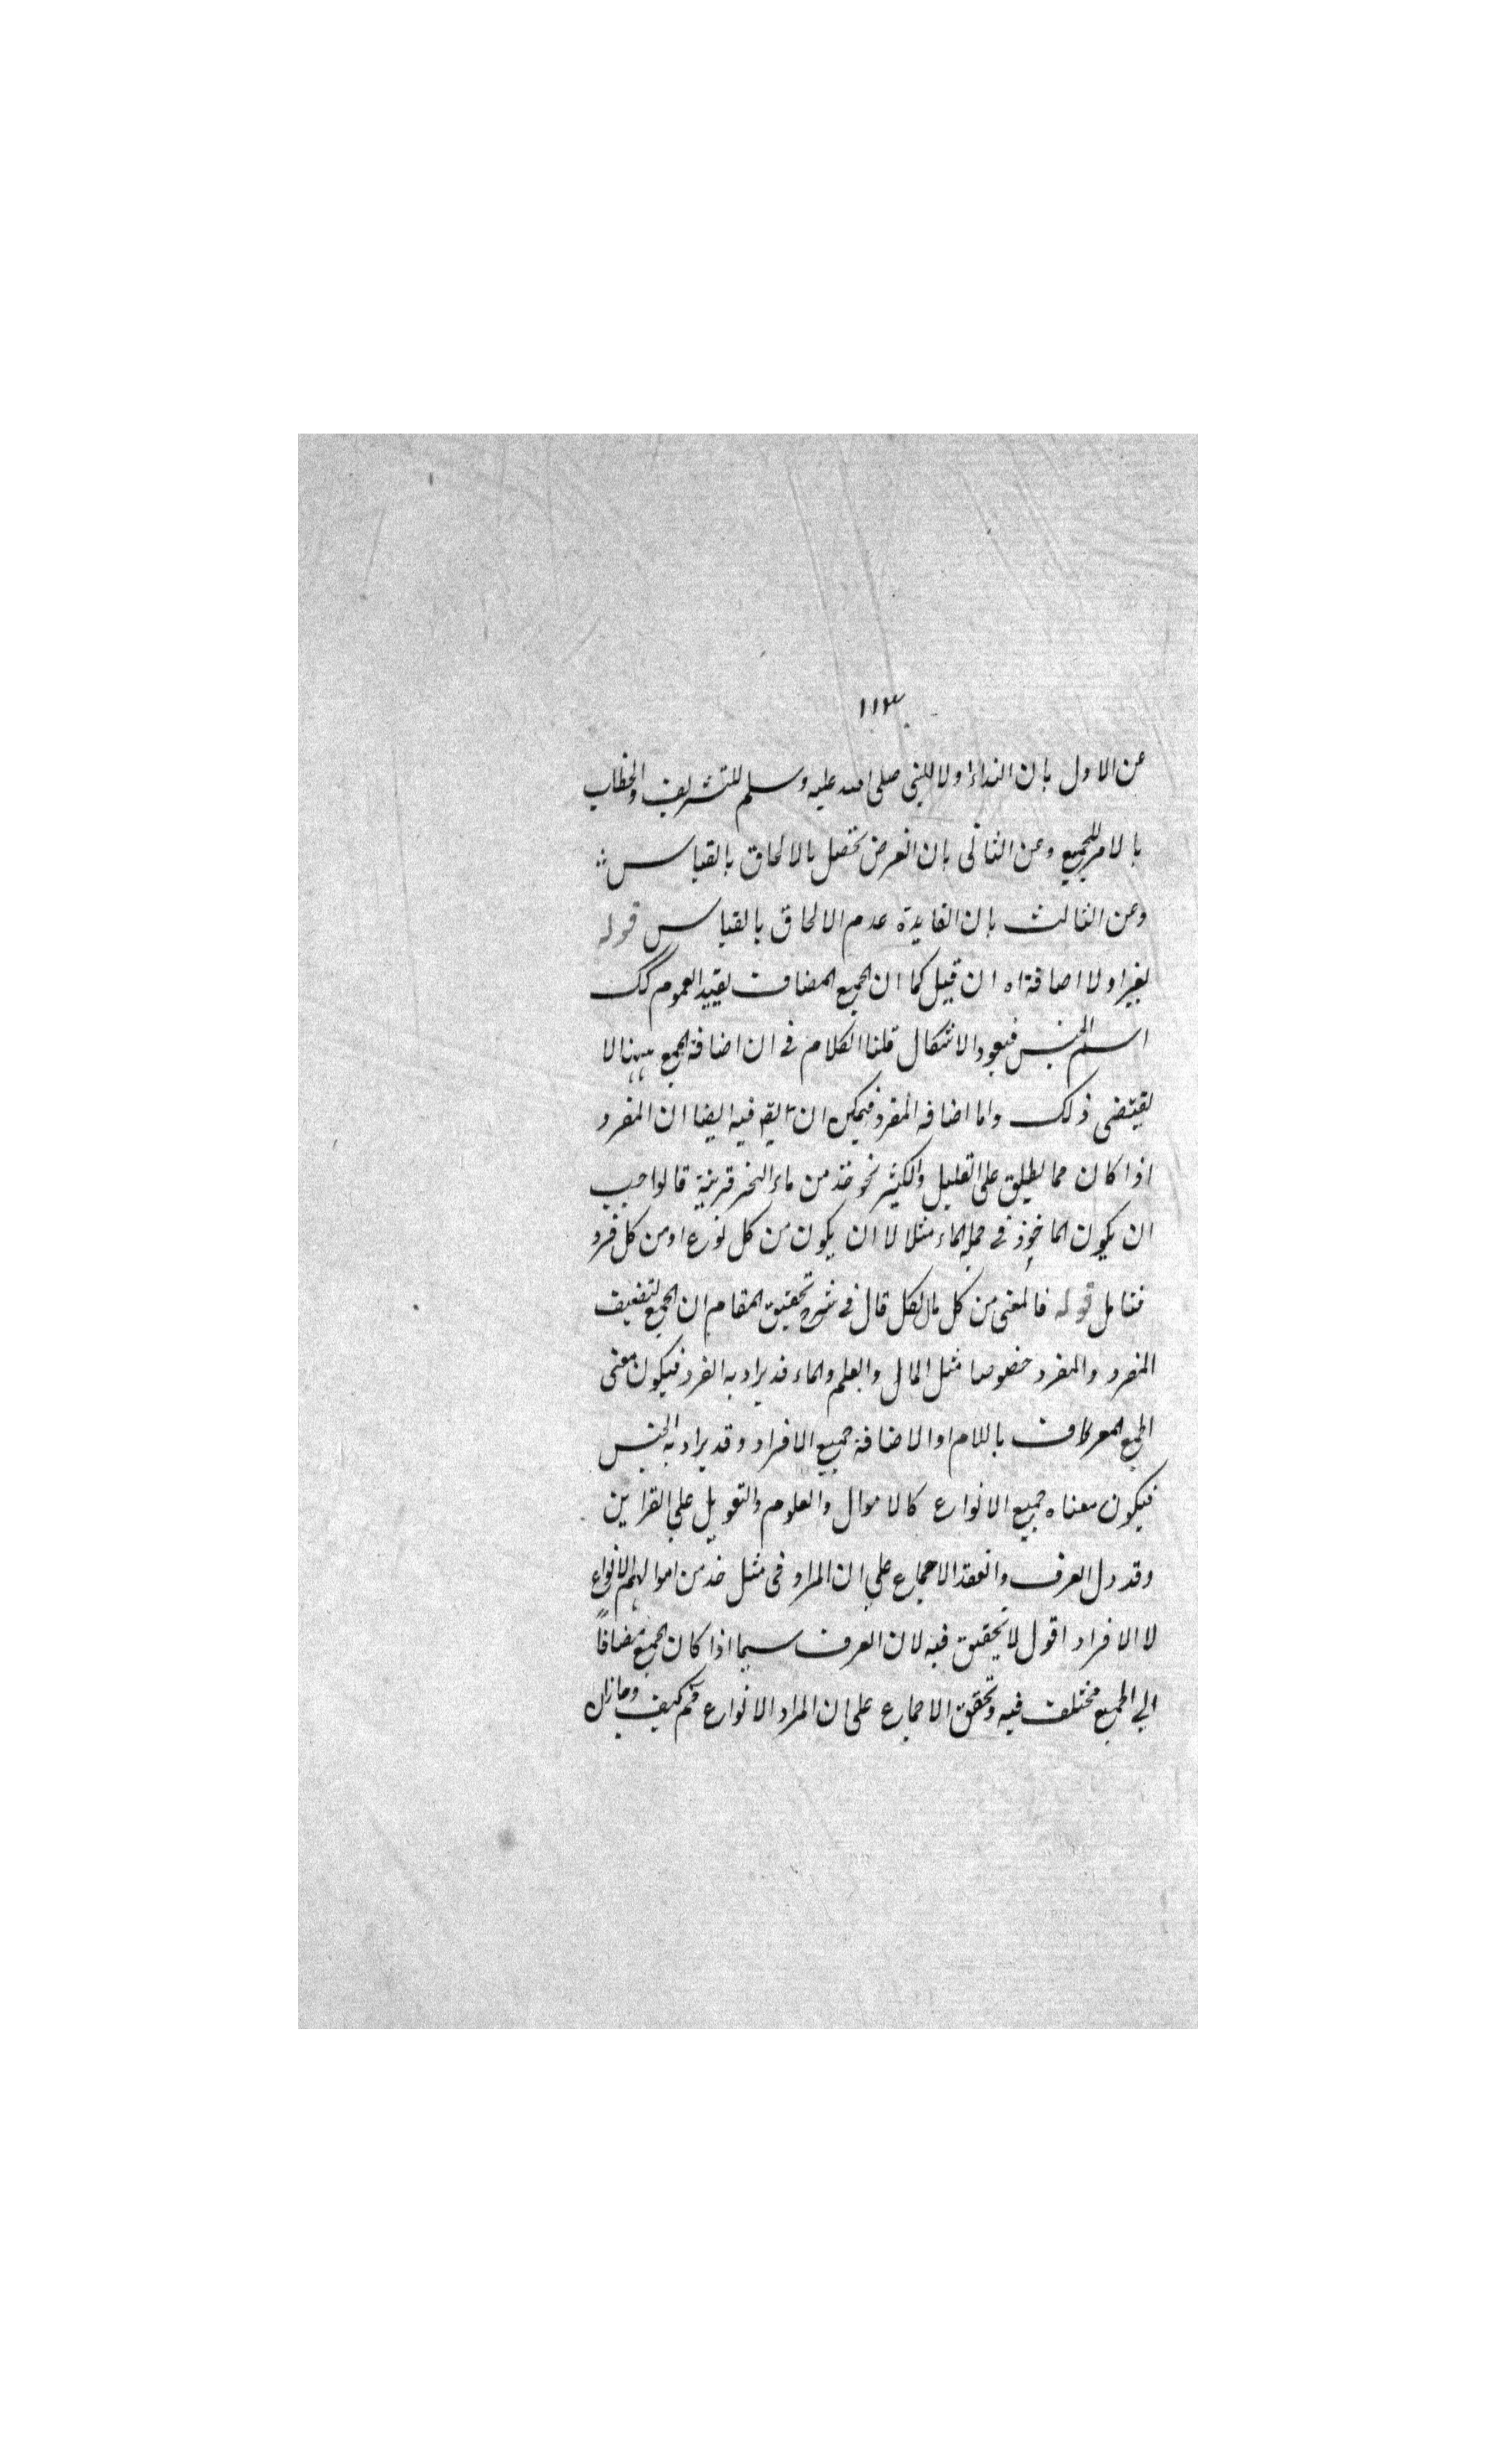 ١١٣
عن الاول بان النداء اولا للنبى صلى الله عليه وسلم للتشريف والخطاب
بالامر للجميع وعن الثانى بان الغرض تحصل بالالحاق بالقياس
وعن الثالث بان الفايدة عدم الالحاق بالقياس قوله
بغير اولا اضافة اه ان قيل كما ان الجمع المضاف يفيد العموم كك
اسم الجنس فيعود الاشكال قلنا الكلام فى ان اضافة الجمع ههنا لا
يقتضى ذلك واما اضافه المفرد فيمكن ان يقه فيه ايضا ان المفرد
اذا كان مما يطلق على القليل والكثير نحو خذ من ماء البحر قربة قالواجب
ان يكون الماخوذ فى جملة الماء مثلا لا ان يكون من كل نوع او من كل فرد
فتامل قوله فالمعنى من كل مال لكل قال فى شرح تحقيق المقام ان الجمع لتضعيف
المفرد والمفرد خصوصا مثل المال والعلم والماء قد يراد به الفرد فيكون معنى
الجمع المعرف باللام او الاضافة جميع الافراد وقد يراد به الجنس
فيكون معناه جميع الانواع كالاموال والعلوم والتعويل على القراين
وقد دل العرف وانعقد الاجماع على ان المراد فى مثل خذ من اموالهم الانواع
لا الافراد اقول لا تحقيق فيه لان العرف سيما اذا كان الجمع مضافًا
الى الجمع مختلف فيه وتحقق الاجماع على ان المراد الانواع مم كيف ومازال